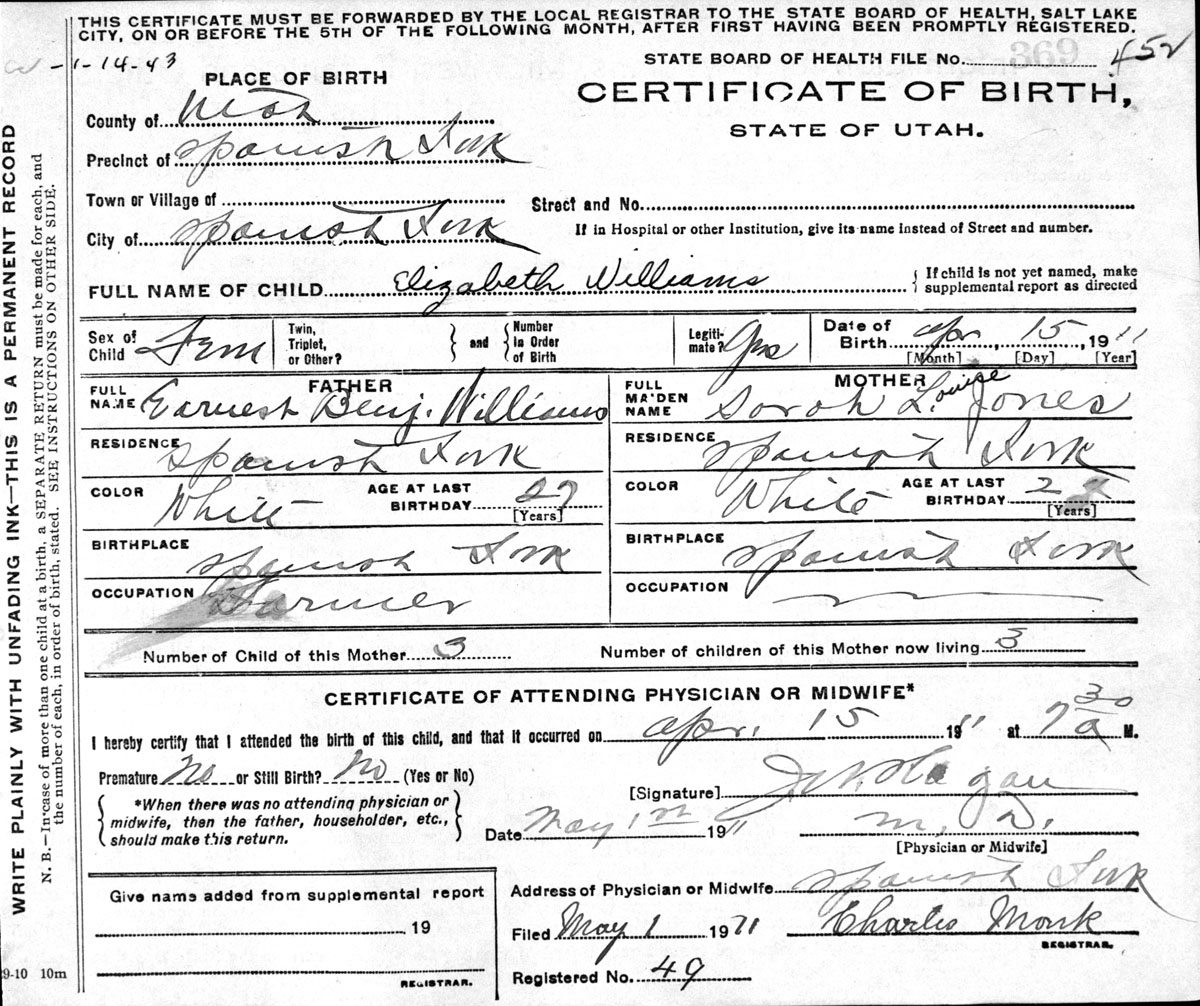 THIS CERTIFICATE MUST BE FORWARDED BY THE LOCAL REGISTRAR TO THE STATE BOARD OF HEALTH, SALT LAKE
CITY, ON OR BEFORE THE 5TH OF THE FOLLOWING MONTH, AFTER FIRST HAVING BEEN PROMPTLY REGISTERED.
1-14-43
STATE BOARD OF HEALTH FILE No. 369 452
PLACE OF BIRTH
CERTIFICATE OF BIRTH,
STATE OF UTAH.
County of Utah
Precinct of Spanish Fork
Town or Village of
Street and No.
City of Spanish Fork
If in Hospital or other Institution, give its name instead of Street and number.
FULL NAME OF CHILD Elizabeth Williams
If child is not yet named, make
supplemental report as directed
Sex of
Child Fem
Twin,
Triplet,
or Other?
and
Number
in Order
of Birth
Legiti-
mate? Yes
Date of
Birth Apr 15, 1911
[Month] [Day] [Year]
FATHER
FULL
NAME Earnest Benj. Williams
MOTHER
FULL
MAIDEN
NAME Sarah Louise Jones
RESIDENCE Spanish Fork
RESIDENCE Spanish Fork
COLOR White
AGE AT LAST
BIRTHDAY 27
[Years]
COLOR White
AGE AT LAST
BIRTHDAY 2
[Years]
BIRTHPLACE Spanish Fork
BIRTHPLACE Spanish Fork
OCCUPATION Farmer
OCCUPATION
Number of Child of this Mother 3
Number of children of this Mother now living 3
CERTIFICATE OF ATTENDING PHYSICIAN OR MIDWIFE*
I hereby certify that I attended the birth of this child, and that it occurred on Apr. 15 1911 at 7 30 a M.
Premature No or Still Birth? No (Yes or No)
*When there was no attending physician or
midwife, then the father, householder, etc.,
should make this return.
[Signature] Hagan
Date May 1st 1911
M. D.
[Physician or Midwife]
Give name added from supplemental report
19
REGISTRAR.
Address of Physician or Midwife Spanish Fork
Filed May 1 1911
Charles Monk
REGISTRAR.
Registered No. 49
WRITE PLAINLY WITH UNFADING INK—THIS IS A PERMANENT RECORD
N. B.—In case of more than one child at a birth, a SEPARATE RETURN must be made for each, and
the number of each, in order of birth, stated. SEE INSTRUCTIONS ON OTHER SIDE.
9-10 10m